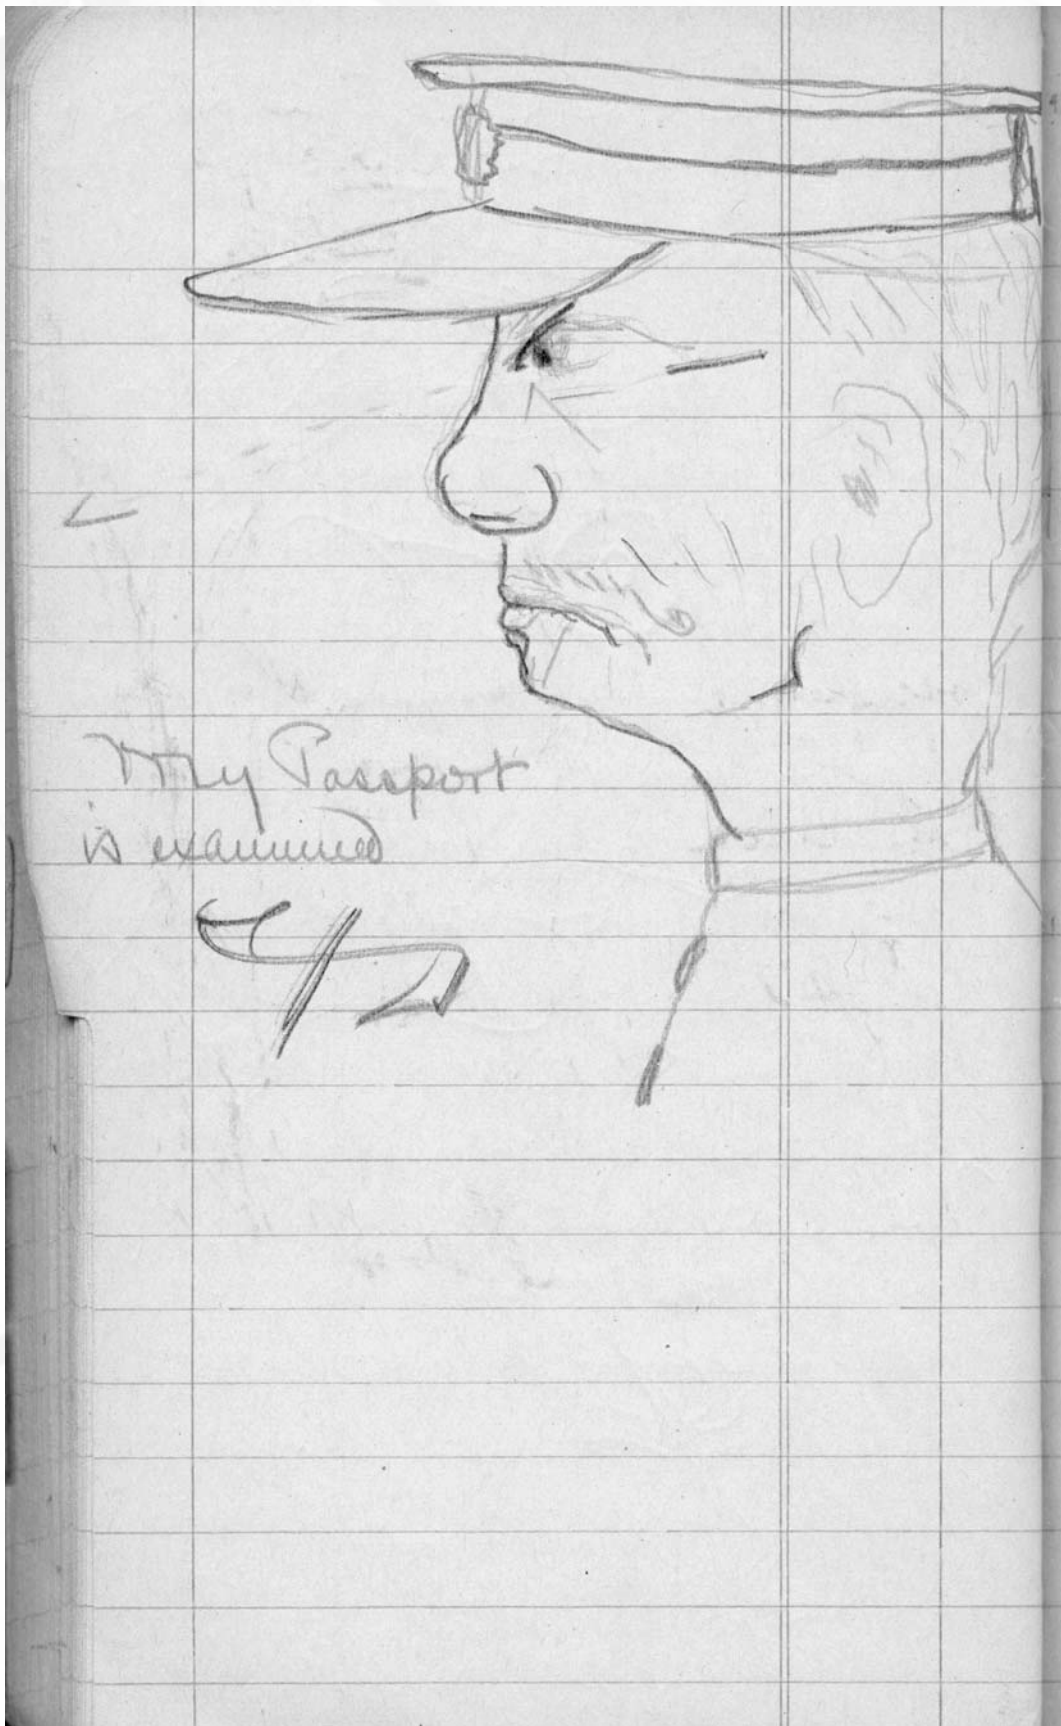 My Passport
is examined